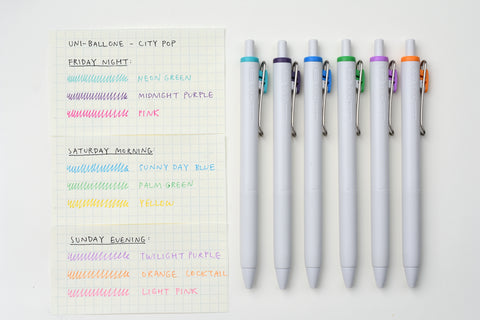 UNI-BALLONE - CITY POP
FRIDAY NIGHT:
NEON GREEN
MIDNIGHT PURPLE
PINK
SATURDAY MORNING:
SUNNY DAY BLUE
PALM GREEN
YELLOW
SUNDAY EVENING:
TWILIGHT PURPLE
ORANGE COCKTAIL
LIGHT PINK